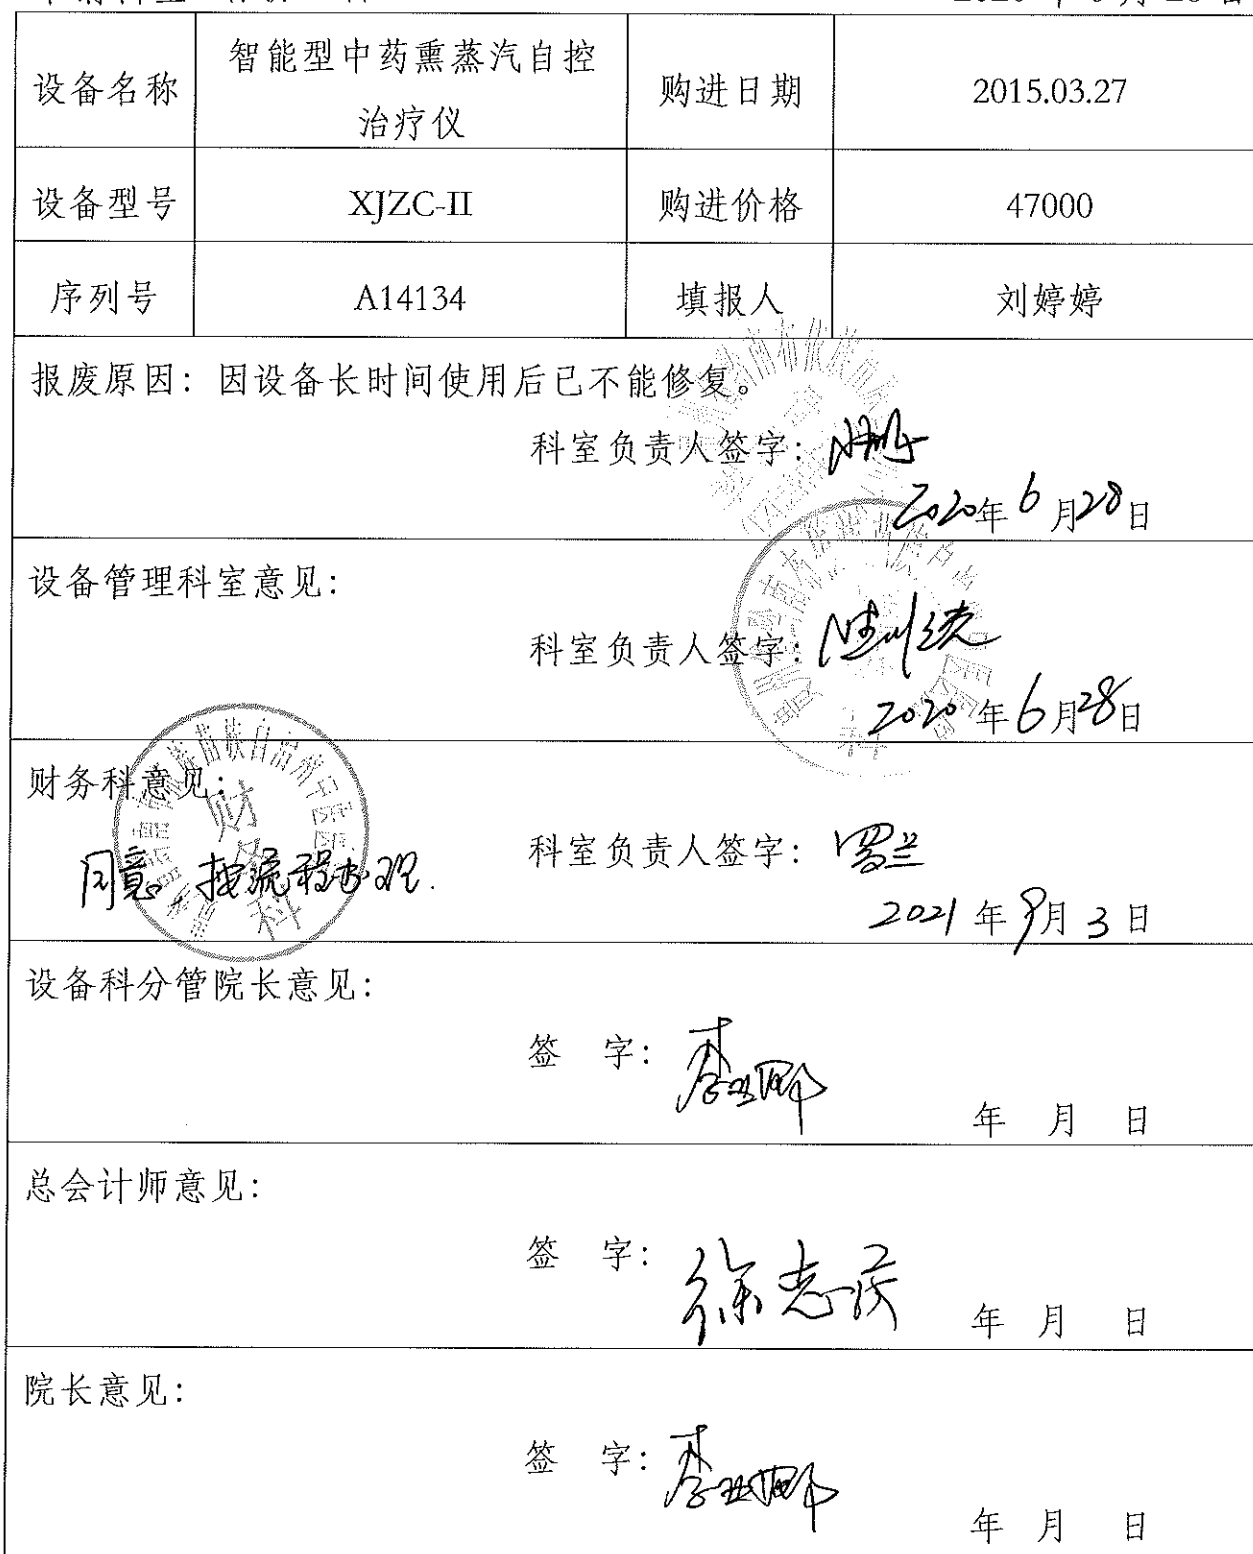 设备名称 智能型中药熏蒸汽自控治疗仪 购进日期 2015.03.27
设备型号 XJZC-II 购进价格 47000
序列号 A14134 填报人 刘婷婷
报废原因：因设备长时间使用后已不能修复。
科室负责人签字：
2020年6月28日
设备管理科室意见：
科室负责人签字：
2020年6月28日
财务科意见：
财务科
同意，按流程办理.
科室负责人签字：罗兰
2021年9月3日
设备科分管院长意见：
签 字：
年 月 日
总会计师意见：
签 字：徐志
年 月 日
院长意见：
签 字：
年 月 日